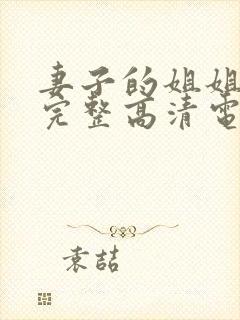 妻子的姐姐
完整高清电
袁喆